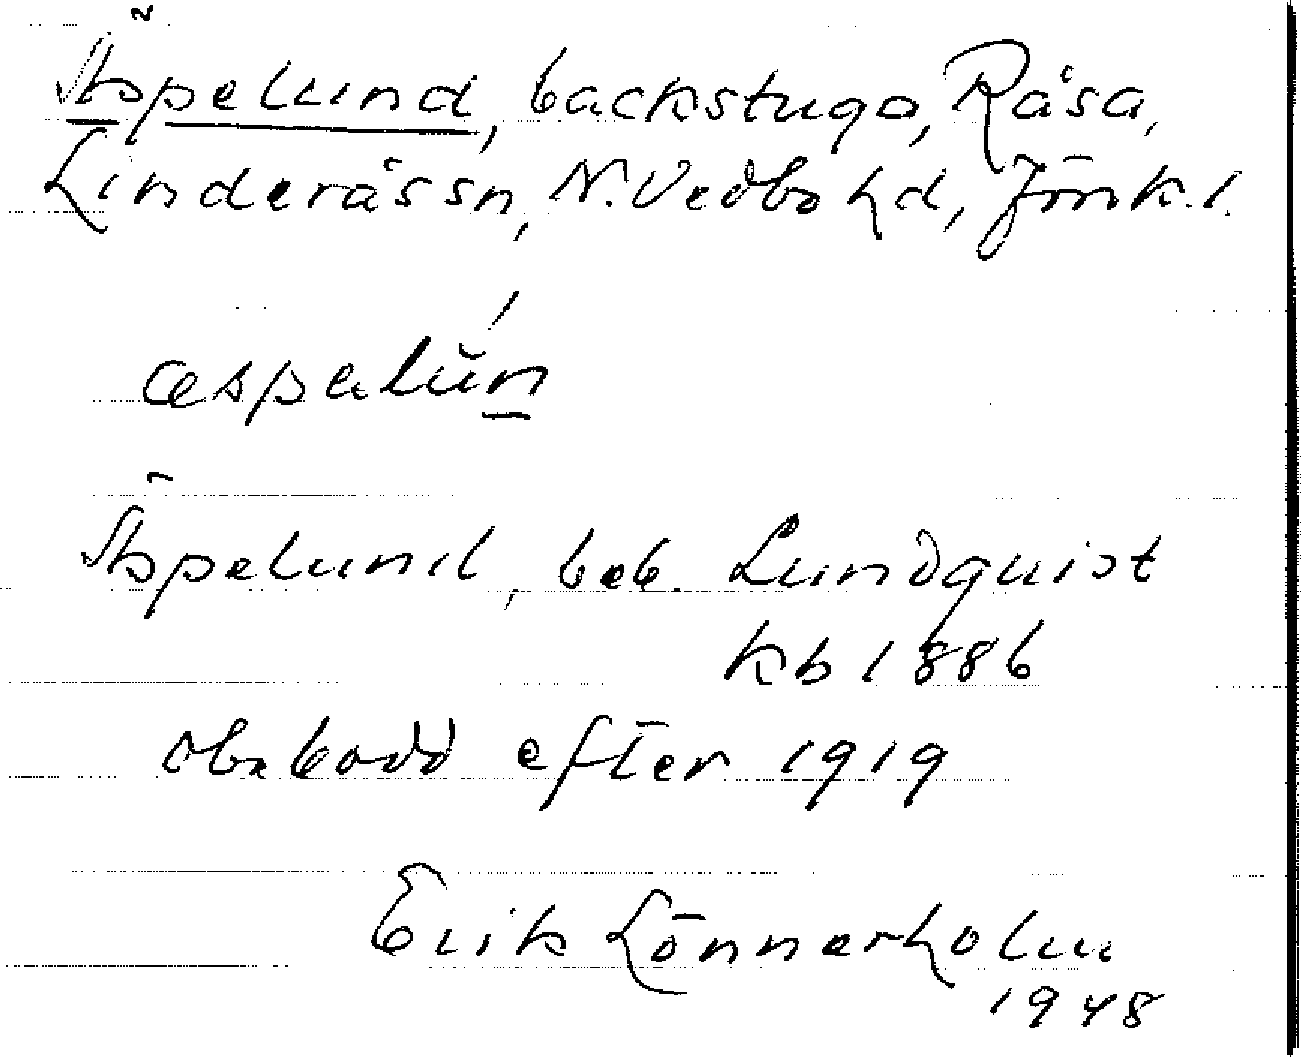 Äspelund, backstuga, Råsa,
Linderås sn, N. Vedbo hd, Jönk. l.
æspalún
Äspelund, beb. Lundquist
kb 1886
obebodd efter 1919
Erik Lönnerholm
1948